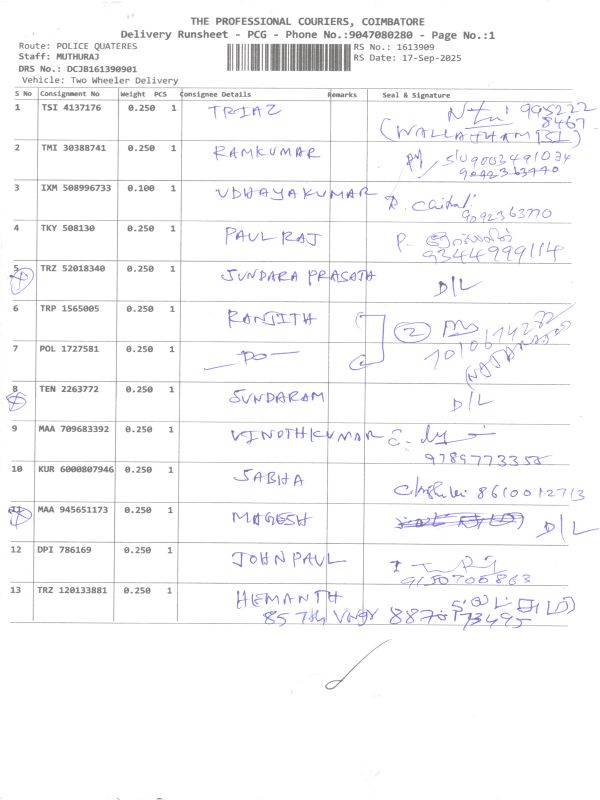 THE PROFESSIONAL COURIERS, COIMBATORE
Delivery Runsheet - PCG - Phone No.:9047080280 - Page No.:1
Route: POLICE QUATERES
Staff: MUTHURAJ
DRS No.: DCJB161390901
Vehicle: Two Wheeler Delivery
RS No.: 1613909
RS Date: 17-Sep-2025
S No Consignment No Weight PCS Consignee Details Remarks Seal & Signature
1 TSI 4137176 0.250 1 TRIAZ 995222
8467
2 TMI 30388741 0.250 1 RAMKUMAR 9003491034
9092363770
3 IXM 508996733 0.100 1 UDHAYAKUMAR
9092363770
4 TKY 508130 0.250 1 PAULRAJ P.
9344999114
5 TRZ 52018340 0.250 1 SUNDARA PRASATH D/L
6 TRP 1565005 0.250 1 RANJITH 2
7 POL 1727581 0.250 1 - DO -
8 TEN 2263772 0.250 1 SUNDARAM D/L
9 MAA 709683392 0.250 1 VINOTHKUMAR
9789773355
10 KUR 6000807946 0.250 1 SABHA 8610012713
11 MAA 945651173 0.250 1 MAGESH D/L
12 DPI 786169 0.250 1 JOHN PAUL
9150700863
13 TRZ 120133881 0.250 1 HEMANTH
85 7th